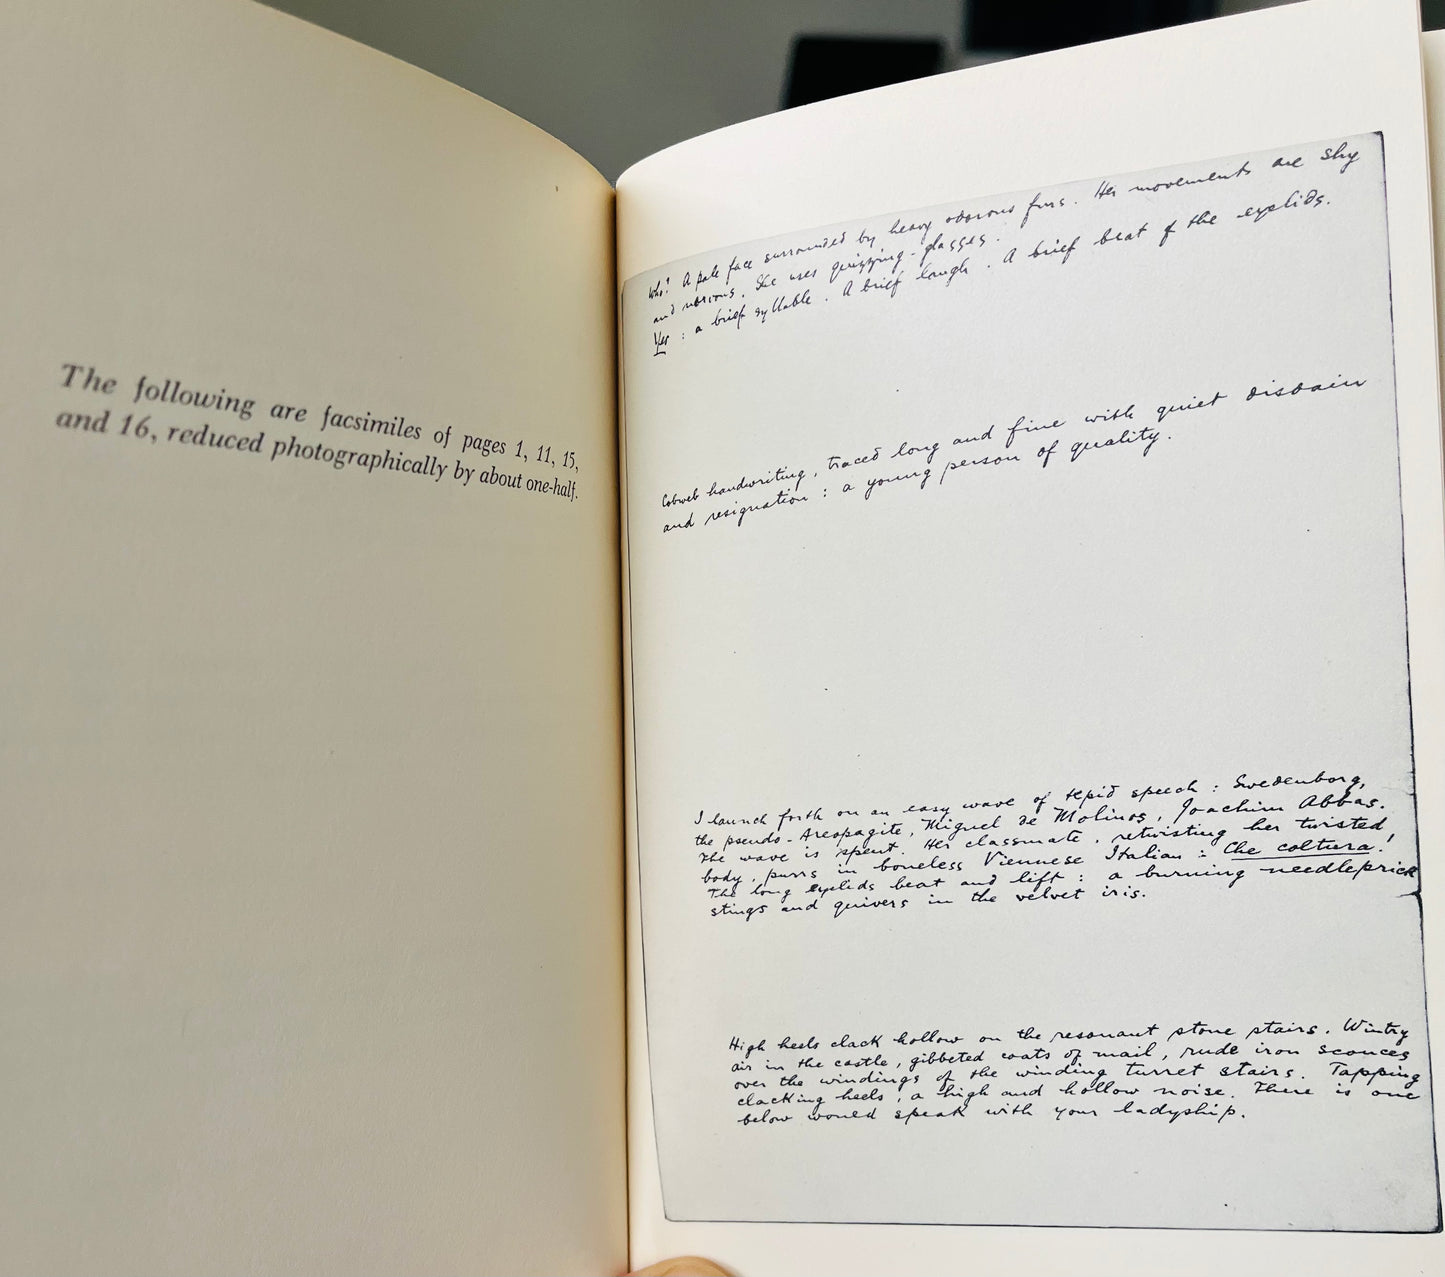 The following are facsimiles of pages 1, 11, 15,
and 16, reduced photographically by about one-half.
Who? A pale face surrounded by heavy odorous furs. Her movements are shy
and nervous. She uses quizzing-glasses.
Yes: a brief syllable. A brief laugh. A brief beat of the eyelids.
Cobweb handwriting, traced long and fine with quiet disdain
and resignation: a young person of quality.
I launch forth on an easy wave of tepid speech: Swedenborg,
the pseudo-Areopagite, Miguel de Molinos, Joachim Abbas.
The wave is spent. Her classmate, retwisting her twisted
body, purrs in boneless Viennese Italian: Che coltura!
The long eyelids beat and lift: a burning needleprick
stings and quivers in the velvet iris.
High heels clack hollow on the resonant stone stairs. Wintry
air in the castle, gibbeted coats of mail, rude iron sconces
over the windings of the winding turret stairs. Tapping
clacking heels, a high and hollow noise. There is one
below would speak with your ladyship.